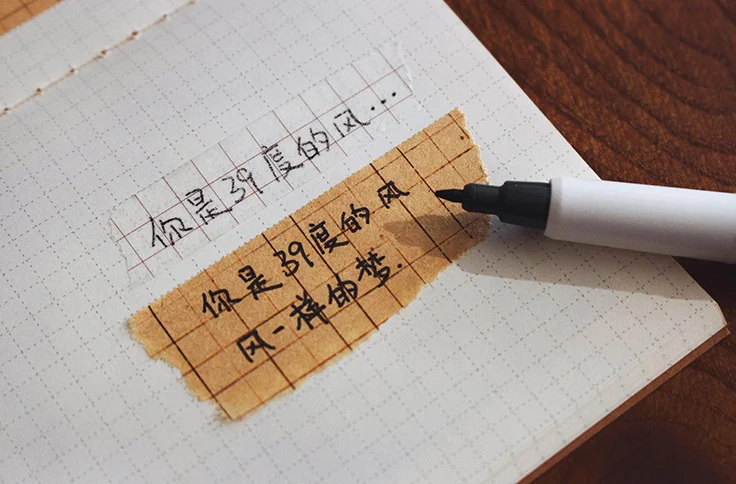 你是39度的风...
你是39度的风
风一样的梦.